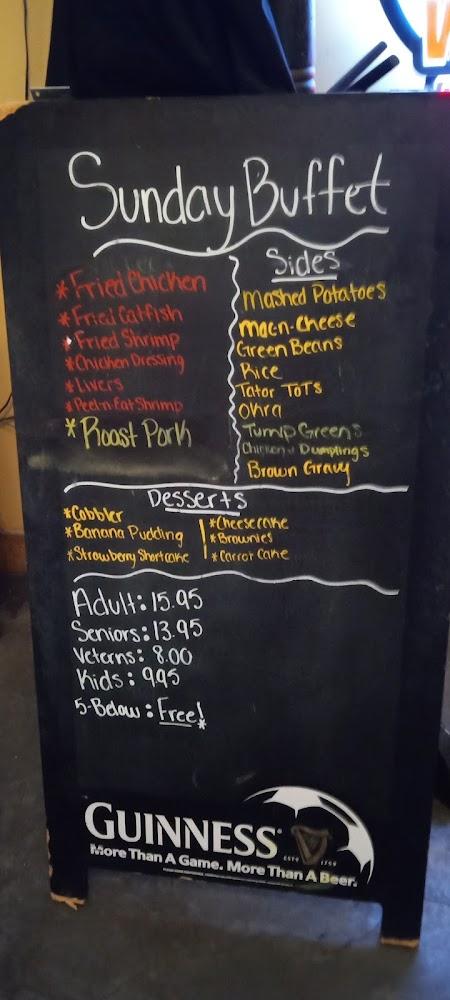 Sunday Buffet
* Fried Chicken
* Fried Catfish
* Fried Shrimp
* Chicken Dressing
* Livers
* Peel-n-Eat Shrimp
* Roast Pork
Sides
Mashed Potatoes
Mac-n-Cheese
Green Beans
Rice
Tator ToTs
Okra
Turnip Greens
Chicken & Dumplings
Brown Gravy
Desserts
*Cobbler
*Banana Pudding
*Strawberry Shortcake
*Cheesecake
*Brownies
*Carrot Cake
Adult: 15.95
Seniors: 13.95
Veterns: 8.00
Kids: 9.95
5-Below: Free!
GUINNESS®
ESTD 1759
More Than A Game. More Than A Beer.